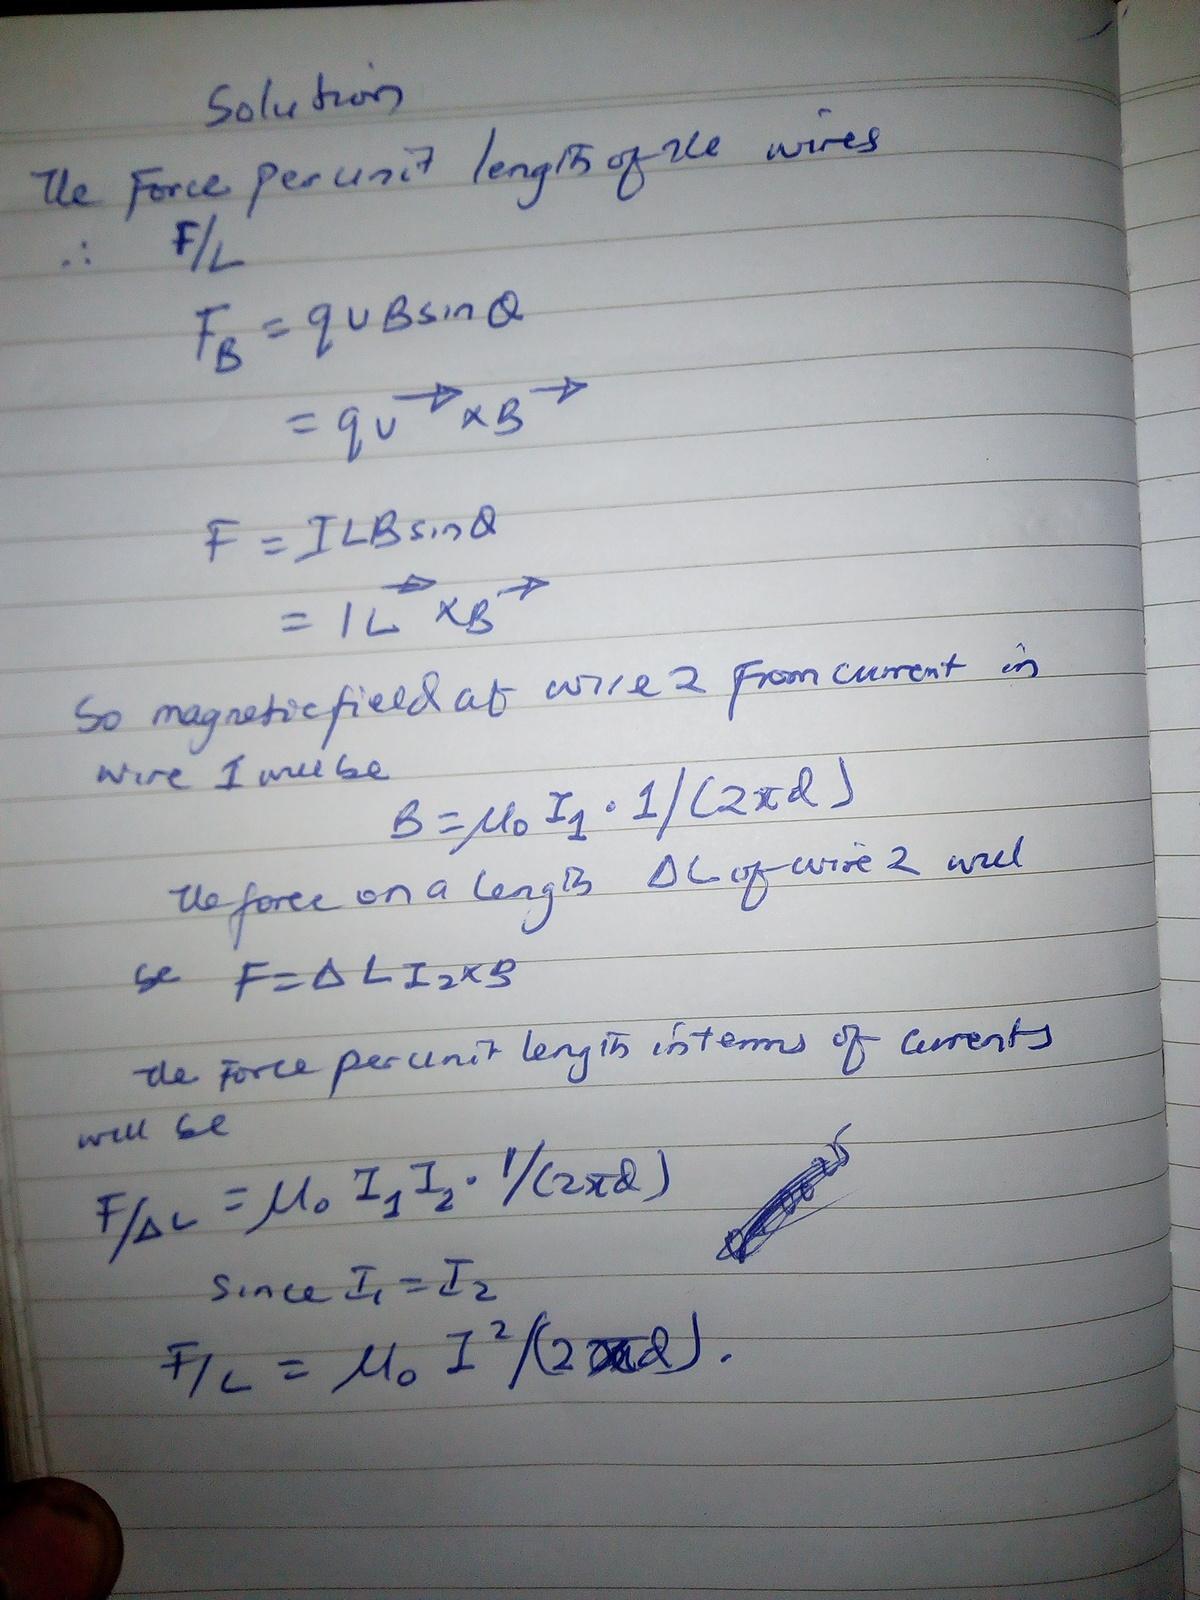 Solution
The Force per unit length of the wires
∴ F/L
F_B = qvBsinθ
= qv→ × B→
F = ILBsinθ
= IL→ × B→
So magnetic field at wire 2 from current in
wire I will be
B = μ₀ I₁ · 1/(2πd)
the force on a length ΔL of wire 2 will
be F = ΔL I₂ × B
the Force per unit length interms of currents
will be
F/ΔL = μ₀ I₁ I₂ · 1/(2πd)
since I₁ = I₂
F/L = μ₀ I²/(2πd).